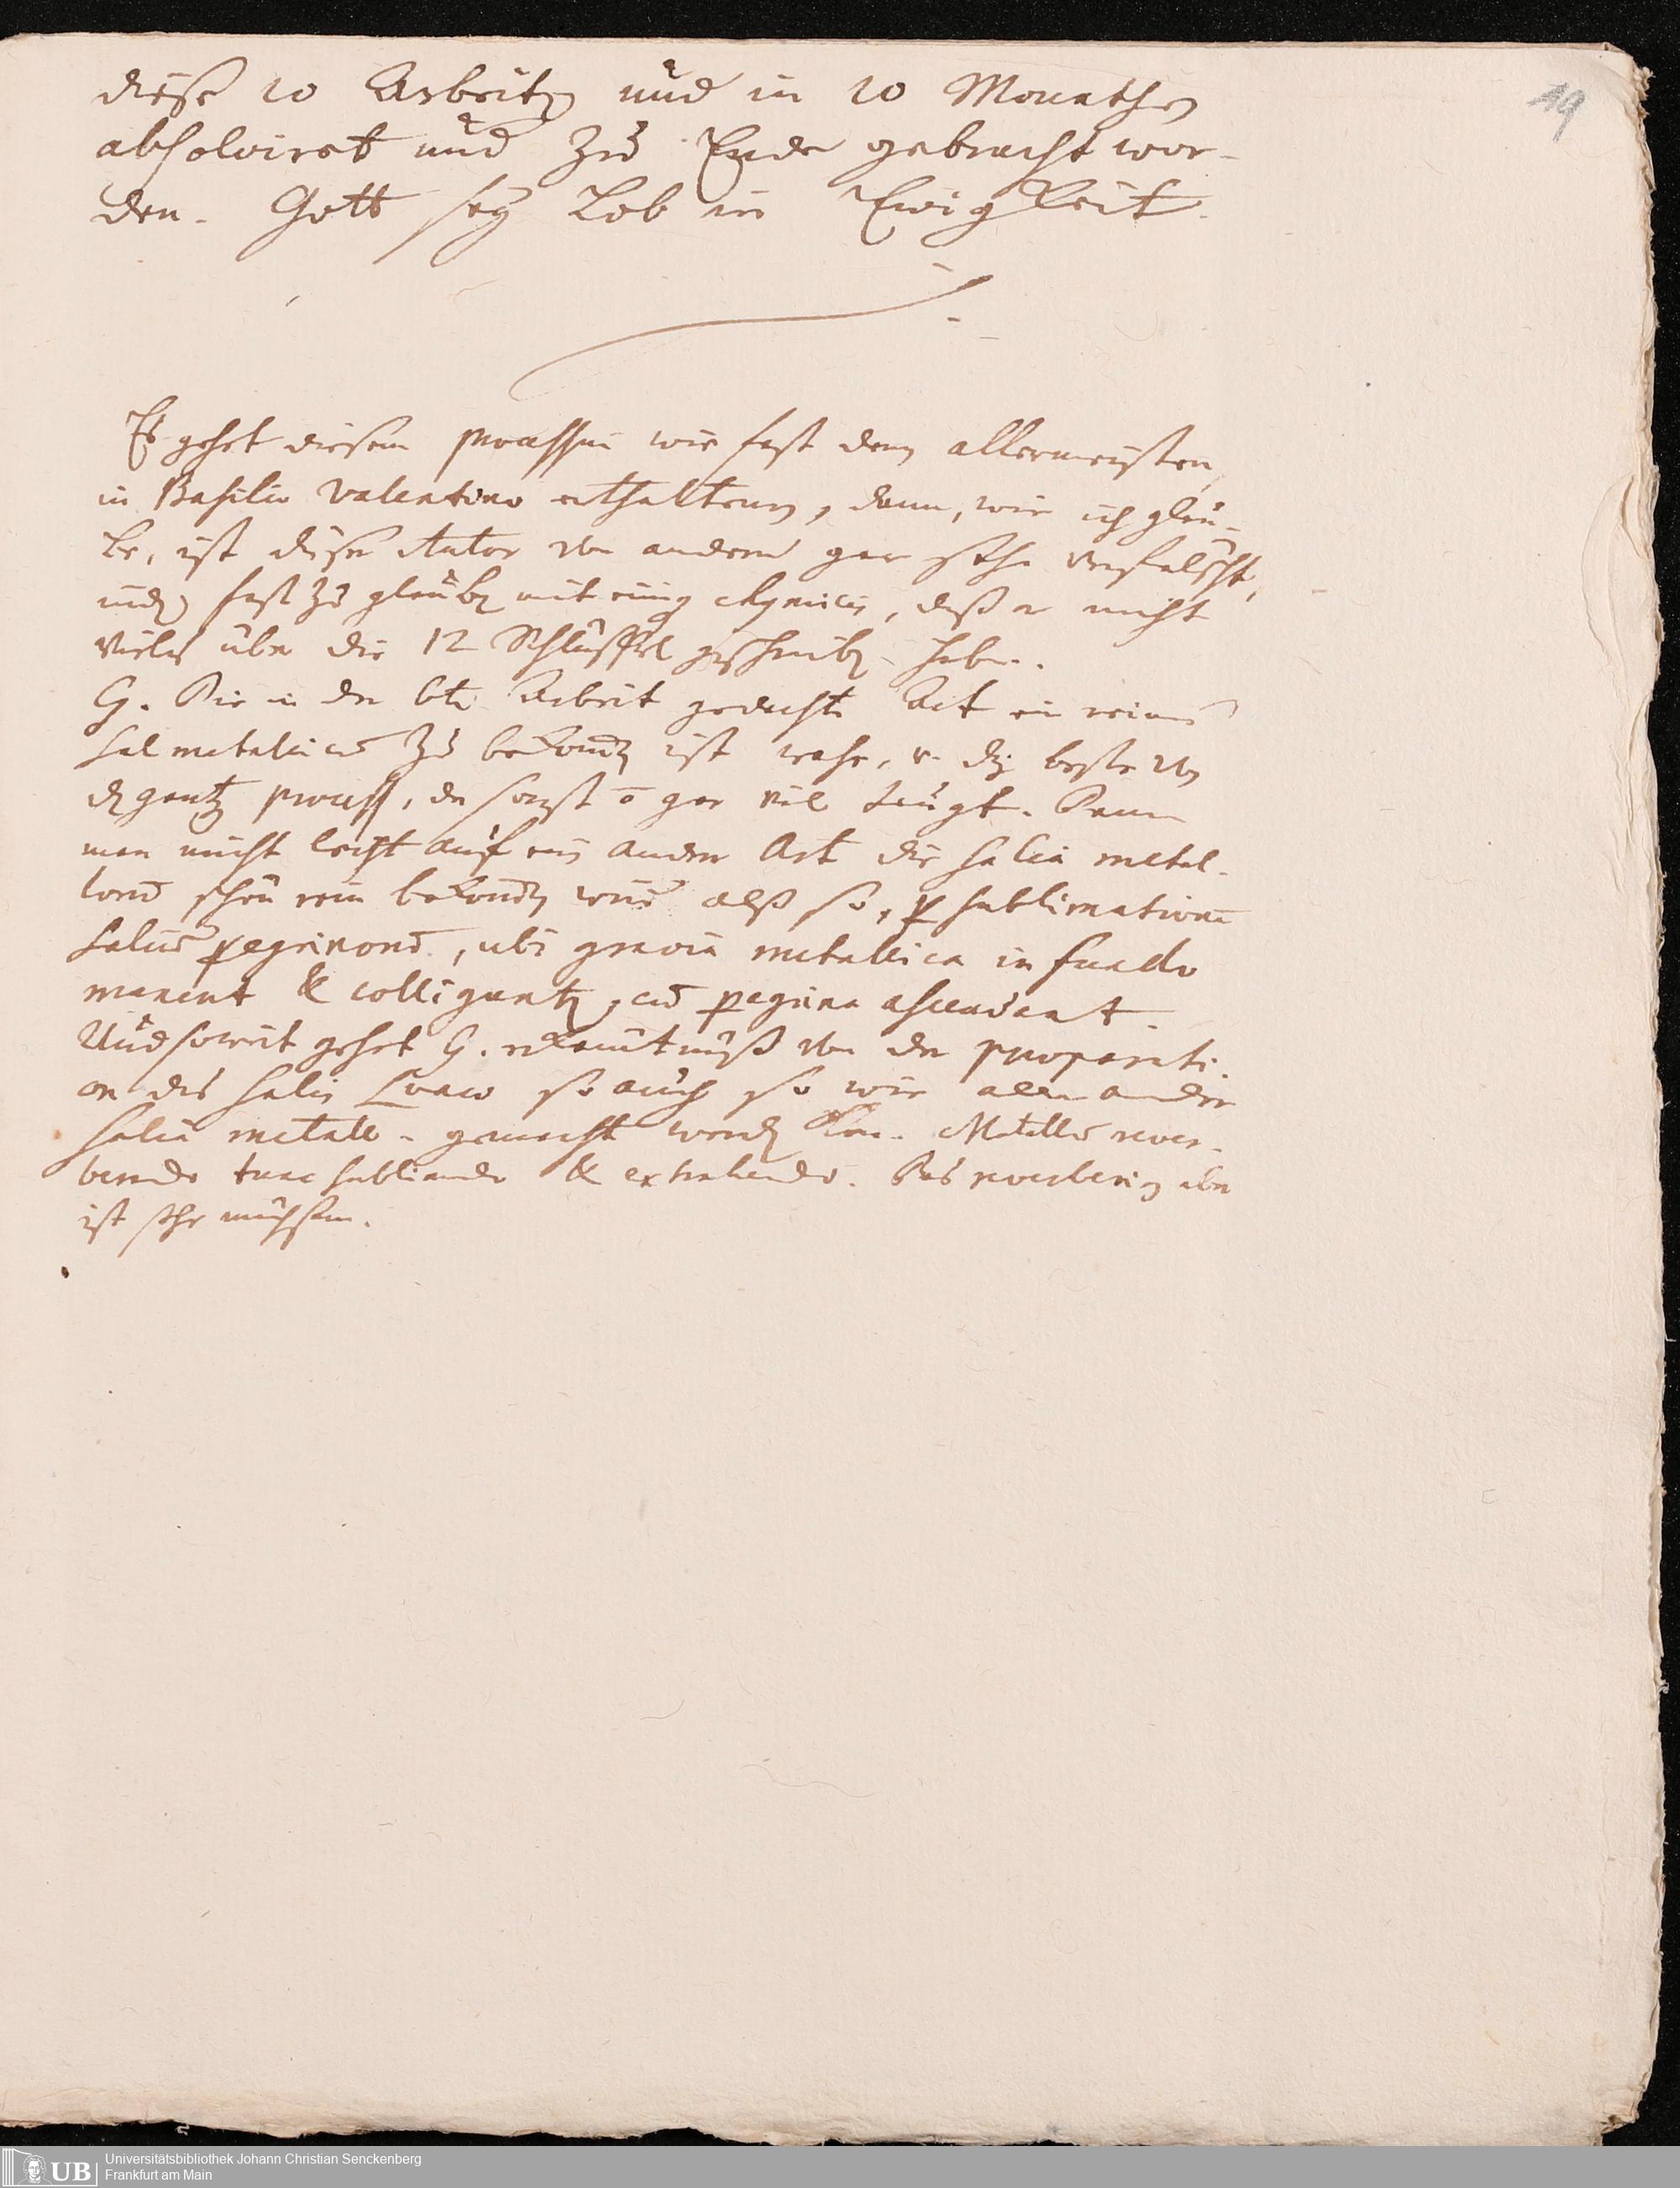 19
diese 10 Arbeiten und in 10 Monathen
absolviret und zu Ende gebracht wor-
den. Gott sey Lob in Ewigkeit.
Es gehet diesem processui wie fast den allermeisten,
in Basilio Valentino enthaltenen, dann, wie ich glau-
be, ist dieser Autor von andern gar sehr verfälscht,
fast zu glauben mit einig chymicis, daß er nicht
vieles über die 12 Schlüssel geschrieben habe.
G. Die in der 6te Arbeit gedachte Art ein reines
sal metallicum zu bekomen ist wahr, v. dz beste von
dem gantzen process, der sonst gar viel taugt. Dann
man nicht leicht auf ein andere Art die salia metal-
lorum schön rein bekomen wird alß so, per sublimationem
salium peregrinorum, ubi gravia metallica in fundo
manent & colligantur, cum peregrina ascendant.
Und soweit gehet G. erkantnuß von der praeparati-
on des salis so auch so wie alle andere
salia metall. gemacht werden. Metallum rever-
berando tunc sublimando & extrahendo. Das reverberiren aber
ist sehr mühsam.
UB Universitätsbibliothek Johann Christian Senckenberg
Frankfurt am Main